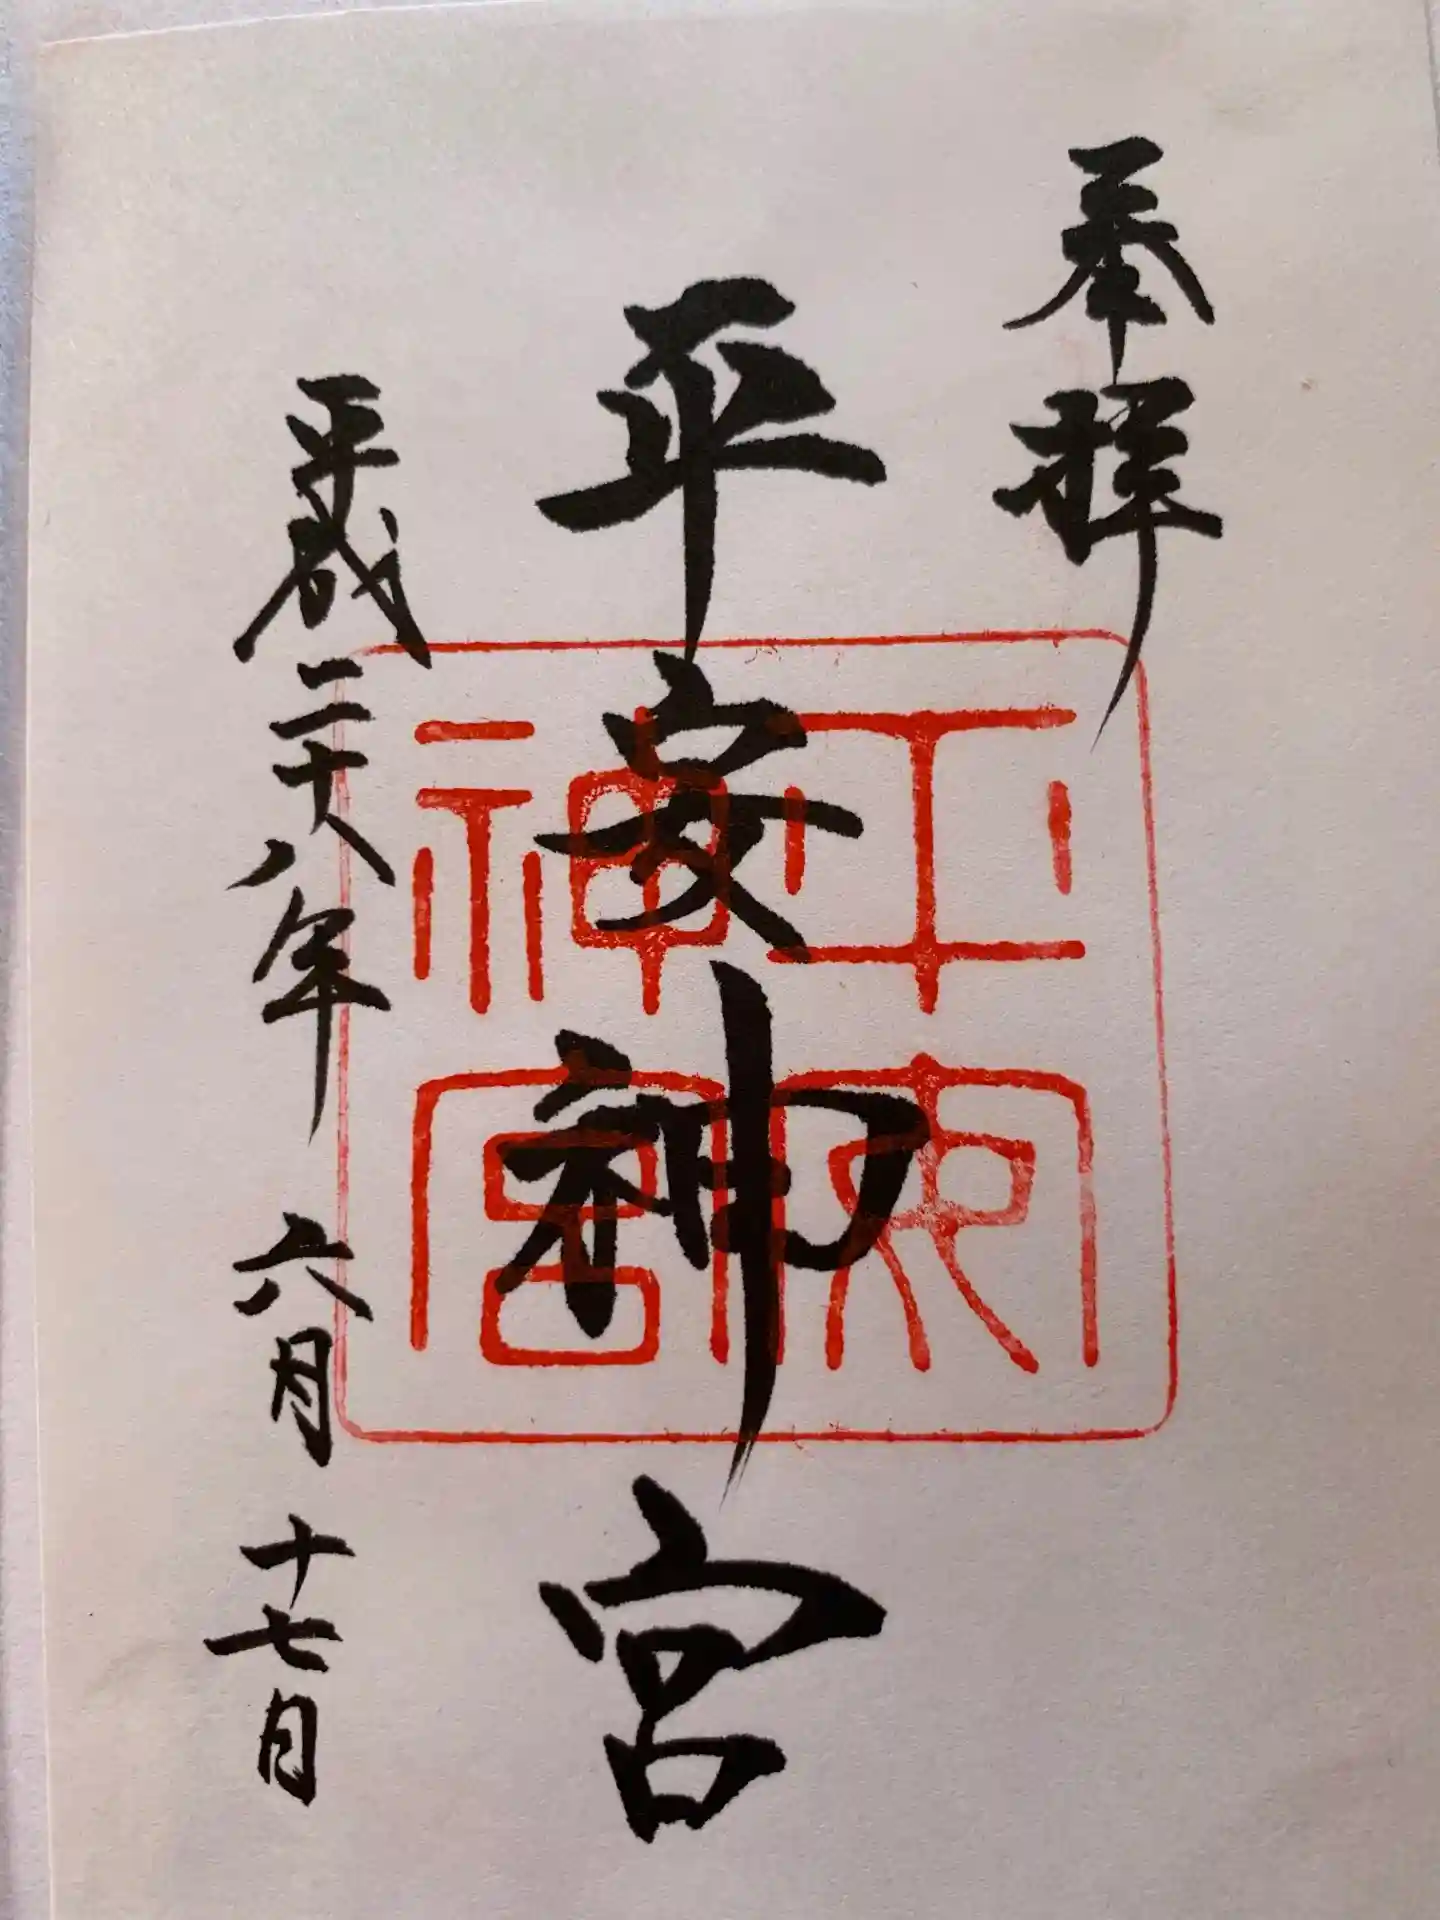 奉拝
平安神宮
平安神宮
平成二十八年 六月 十七日